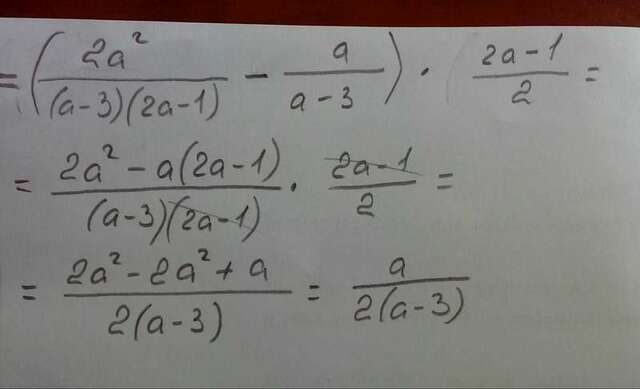 = (2a²/((a-3)(2a-1)) - a/(a-3)) · (2a-1)/2 =
= (2a² - a(2a-1))/((a-3)(2a-1)) · (2a-1)/2 =
= (2a² - 2a² + a)/(2(a-3)) = a/(2(a-3))